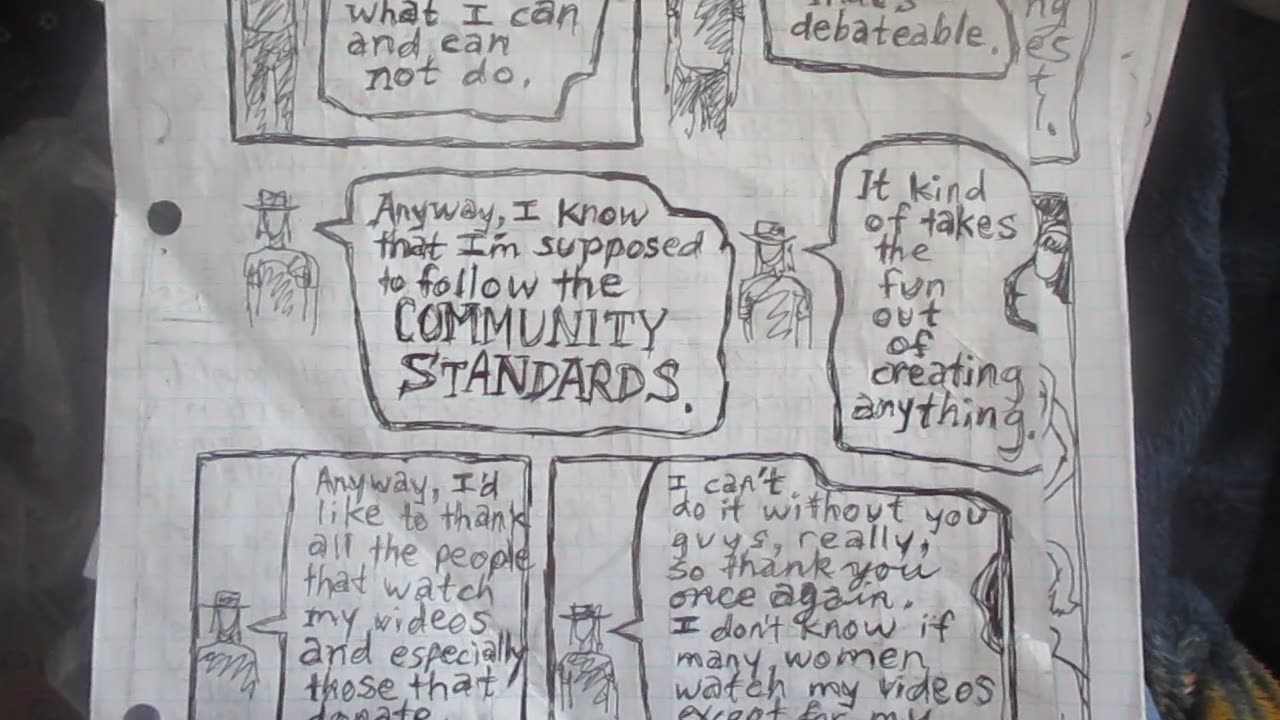 what I can
and can
not do.
debateable.
ng
es
t.
Anyway, I know
that I'm supposed
to follow the
COMMUNITY
STANDARDS.
It kind
of takes
the
fun
out
of
creating
anything.
Anyway, I'd
like to thank
all the people
that watch
my videos
and especially
those that
donate.
I can't
do it without you
guys, really,
so thank you
once again.
I don't know if
many, women
watch my videos
except for my